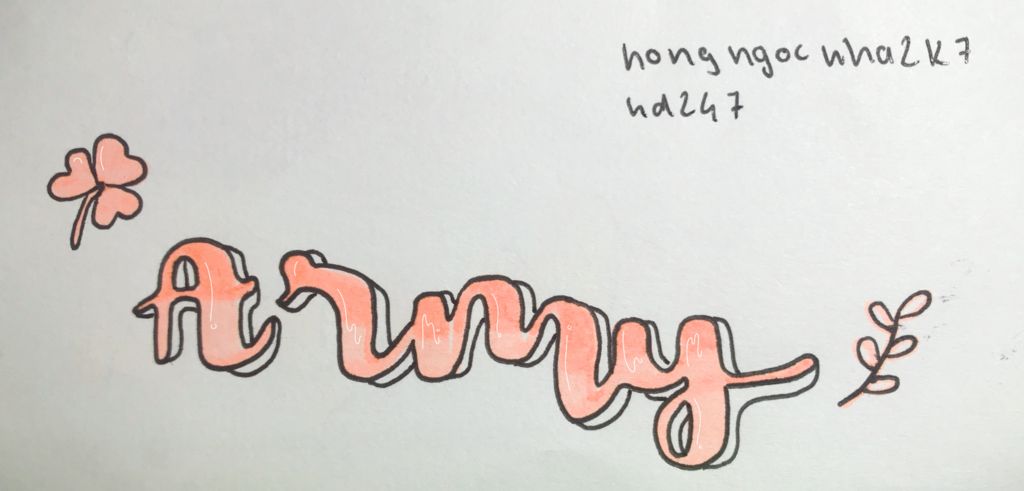 hong ngoc nha2k7
nd247
Army